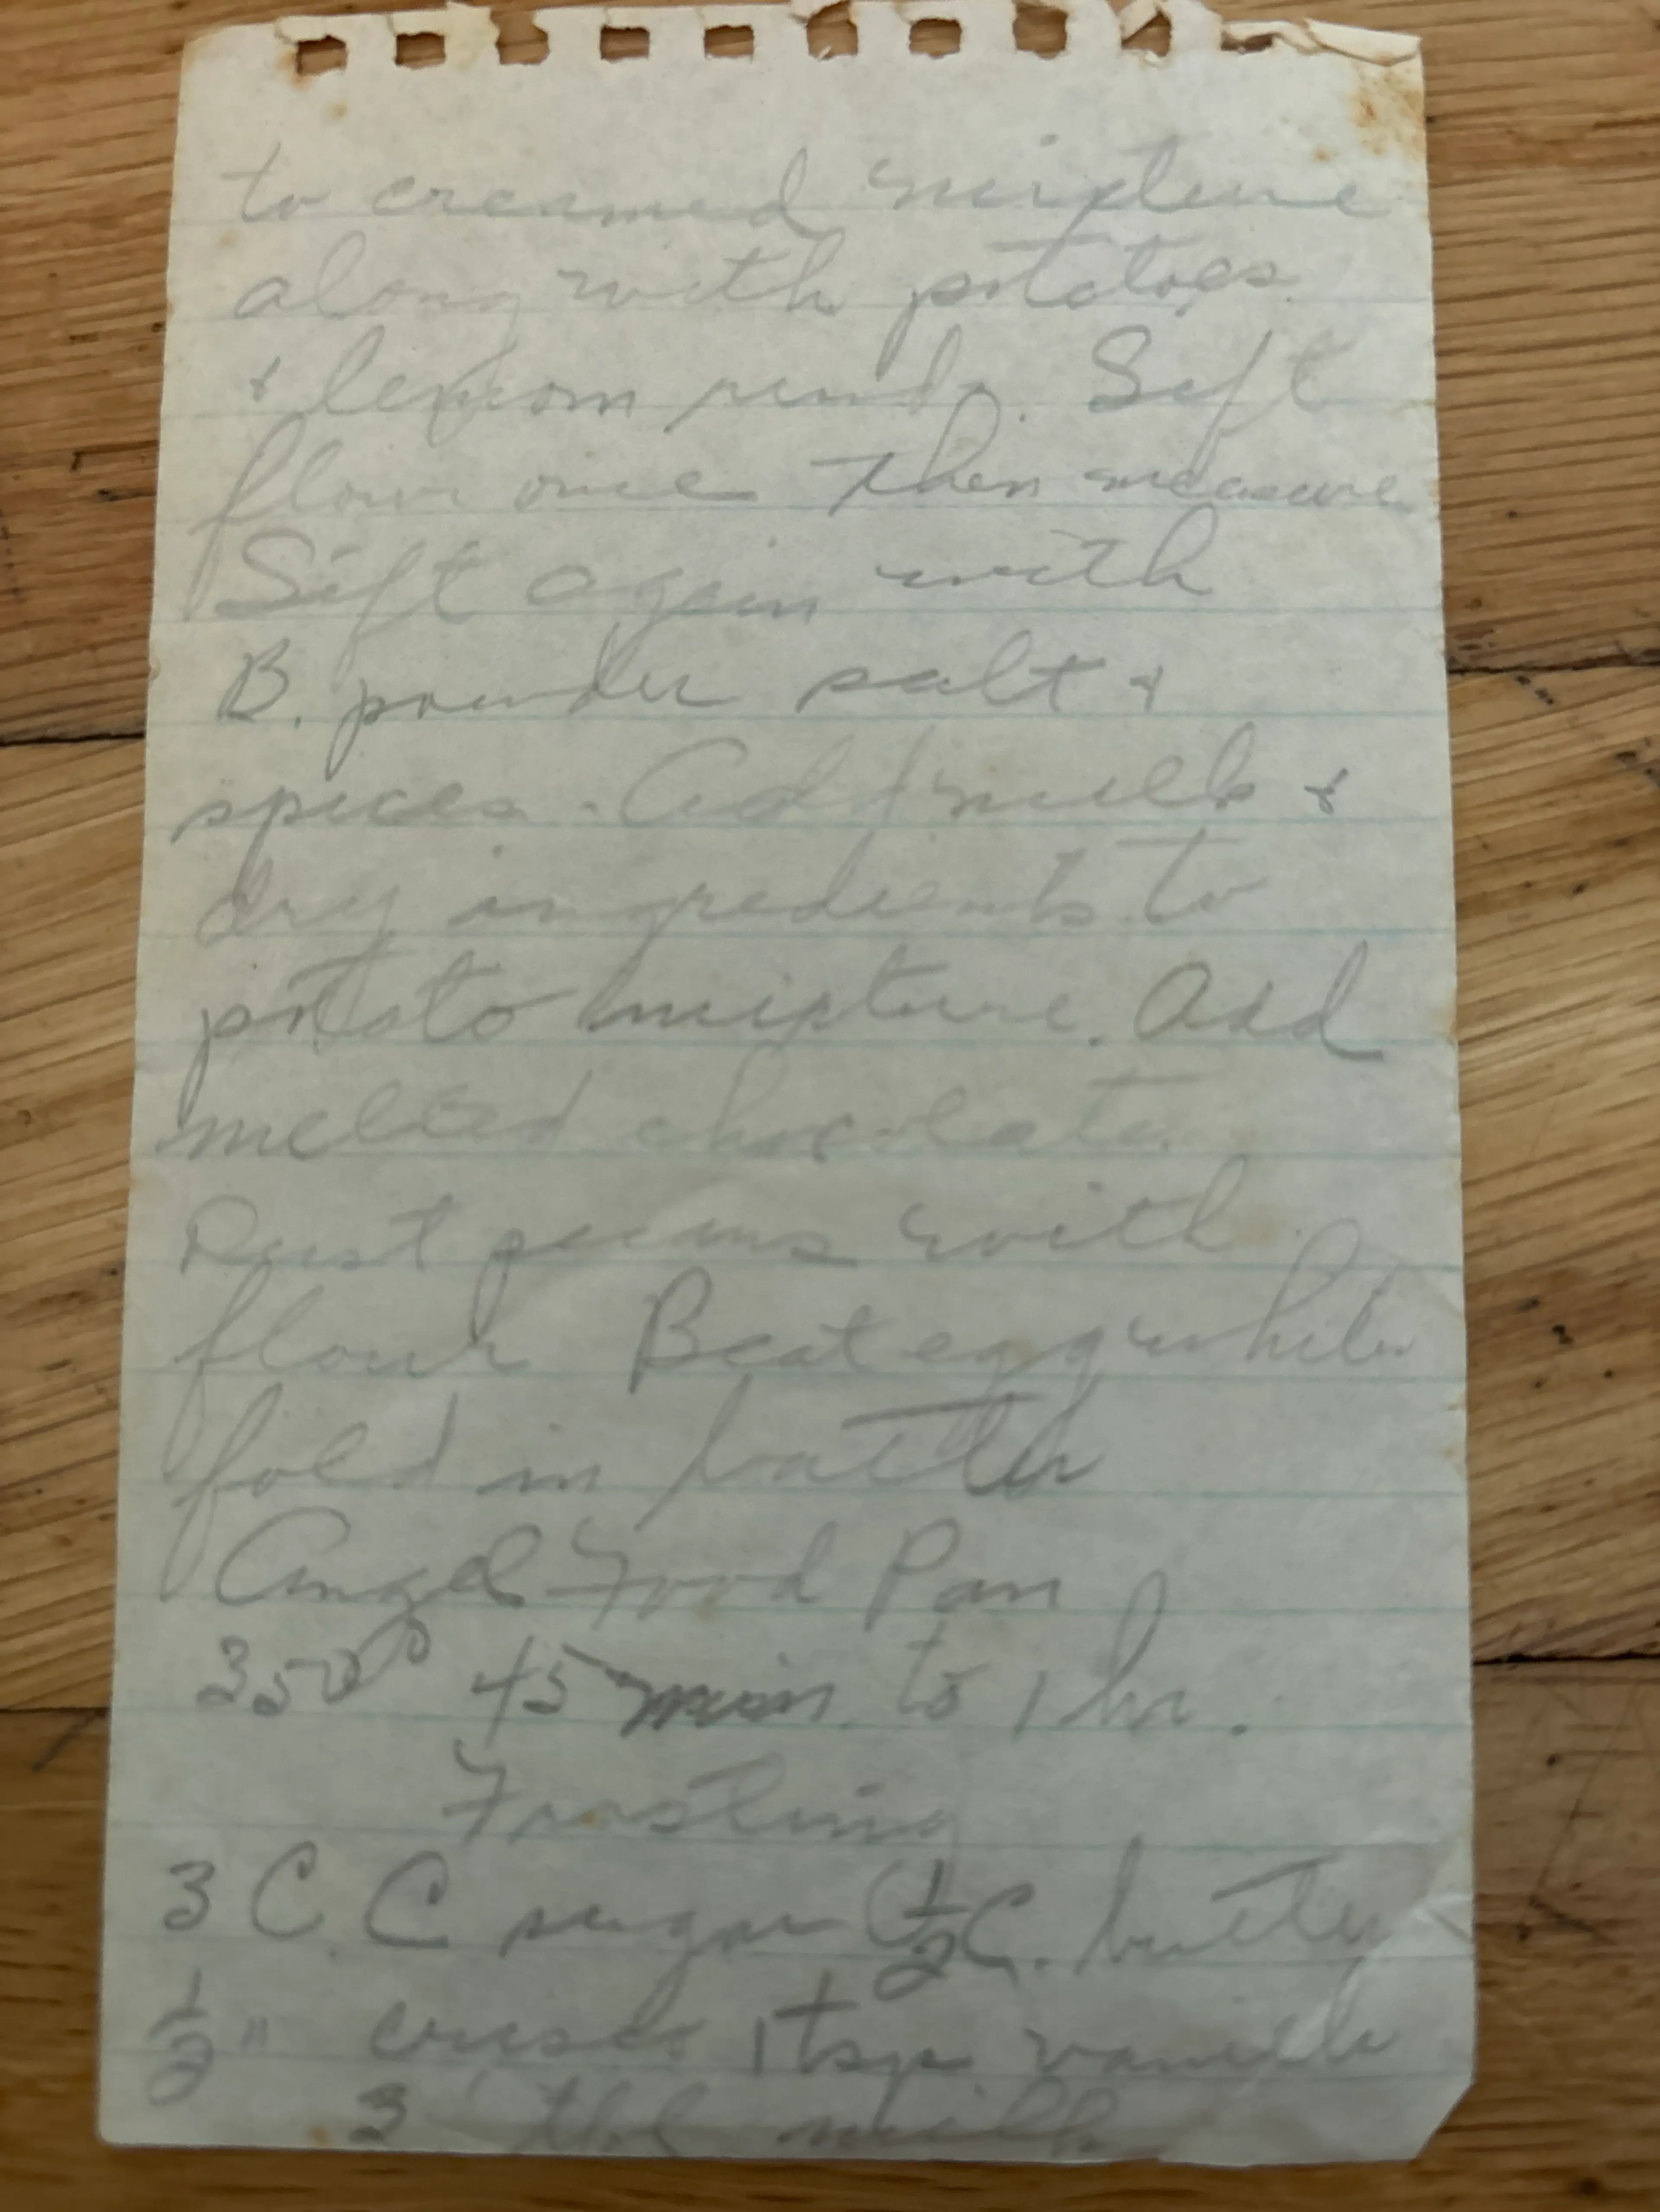 to creamed mixture
along with potatoes
+ lemon rind. Sift
flour once then measure
Sift again with
B. powder salt +
spices. Add milk +
dry ingredients to
potato mixture. Add
melted chocolate.
Dust pecans with
flour Beat egg white
fold in batter
Angel Food Pan
350° 45 min to 1 hr.
Frosting
3 C. C sugar 1/2 C. butter
1/2 " 1 tsp vanilla
3 tbl milk